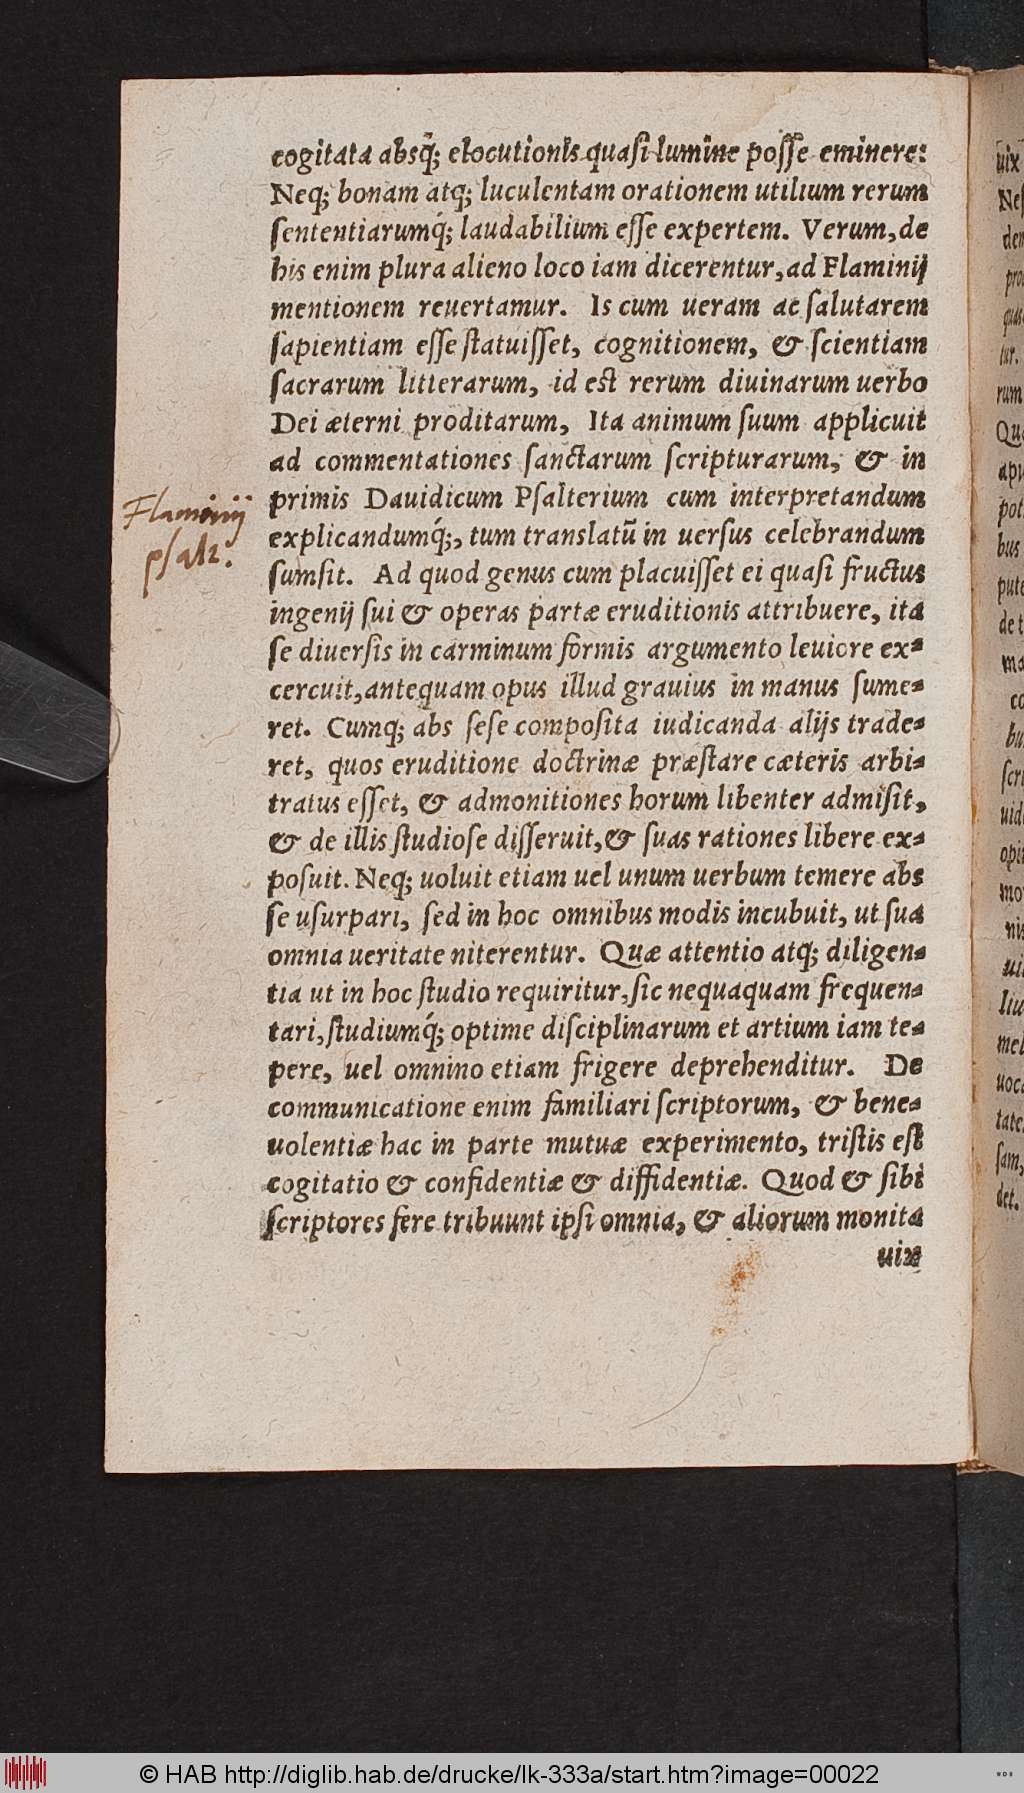 cogitata absq̃; elocutionis quasi lumine posse eminere:
Neq; bonam atq; luculentam orationem utilium rerum
ſententiarumq́; laudabilium eſſe expertem. Verum, de
his enim plura alieno loco iam dicerentur, ad Flaminij
mentionem reuertamur. Is cum ueram ac ſalutarem
ſapientiam eſſe ſtatuiſſet, cognitionem, & ſcientiam
ſacrarum litterarum, id est rerum diuinarum uerbo
Dei æterni proditarum, Ita animum ſuum applicuit
ad commentationes ſanctarum ſcripturarum, & in
primis Dauidicum Pſalterium cum interpretandum
explicandumq́;, tum translatũ in uerſus celebrandum
ſumſit. Ad quod genus cum placuiſſet ei quaſi fructus
ingenij ſui & operas partæ eruditionis attribuere, ita
Flaminij
pſalt.
ſe diuerſis in carminum formis argumento leuiore ex-
cercuit, antequam opus illud grauius in manus ſume-
ret. Cumq; abs ſeſe compoſita iudicanda alijs trade-
ret, quos eruditione doctrinæ præſtare cæteris arbi-
tratus eſſet, & admonitiones horum libenter admiſit,
& de illis ſtudioſe diſſeruit, & ſuas rationes libere ex-
poſuit. Neq; uoluit etiam uel unum uerbum temere abs
ſe uſurpari, ſed in hoc omnibus modis incubuit, ut ſua
omnia ueritate niterentur. Quæ attentio atq; diligen-
tia ut in hoc ſtudio requiritur, ſic nequaquam frequen-
tari, ſtudiumq́; optime diſciplinarum et artium iam te-
pere, uel omnino etiam frigere deprehenditur. De
communicatione enim familiari ſcriptorum, & bene-
uolentiæ hac in parte mutuæ experimento, triſtis eſt
cogitatio & confidentiæ & diffidentiæ. Quod & ſibi
ſcriptores fere tribuunt ipſi omnia, & aliorum monita
uix
© HAB http://diglib.hab.de/drucke/lk-333a/start.htm?image=00022